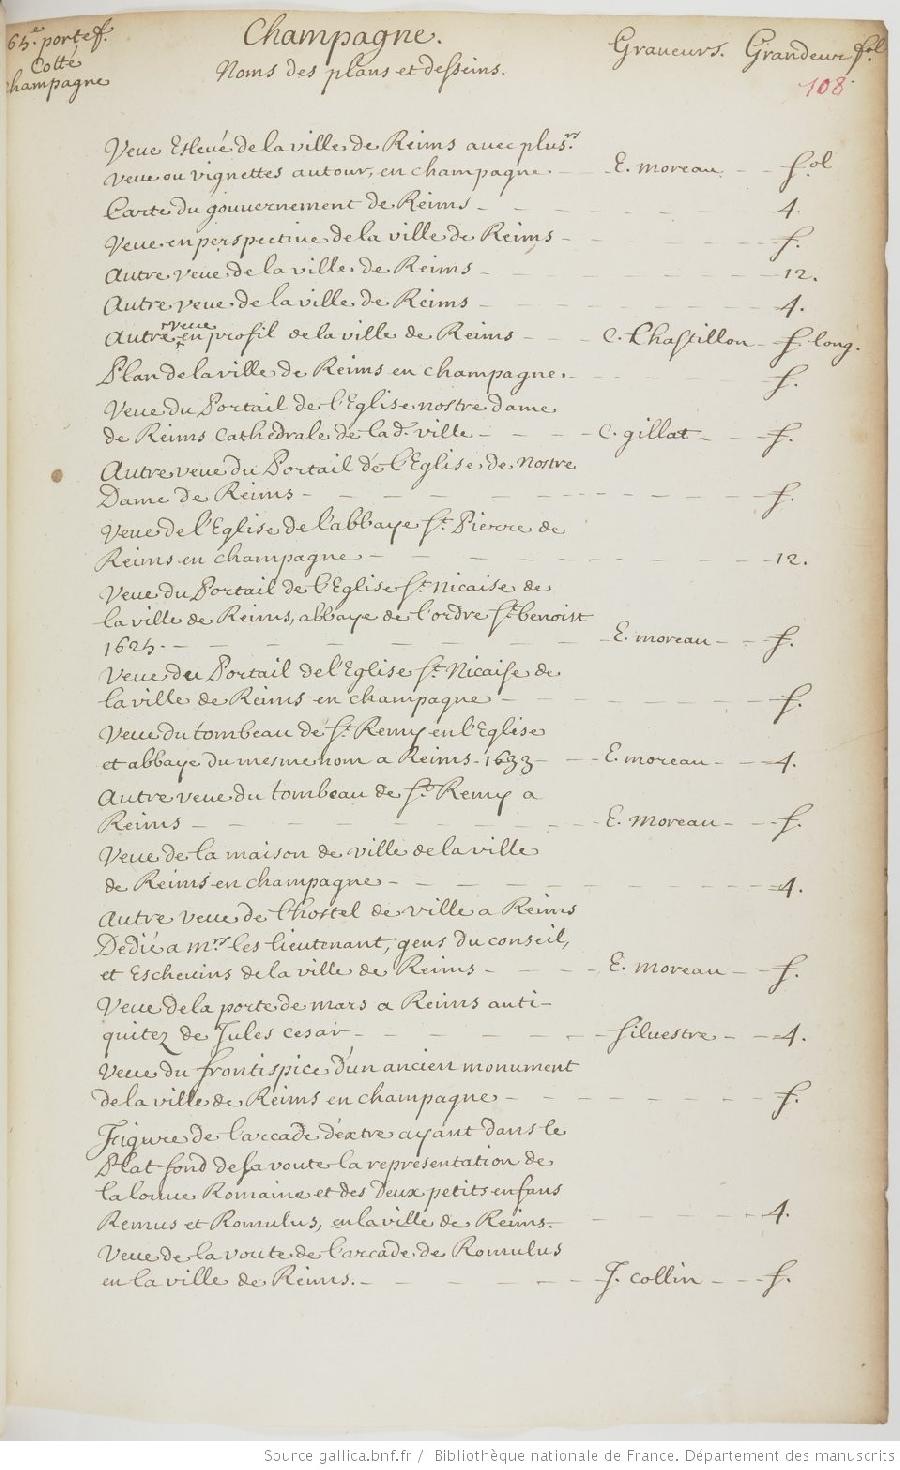 65.e portef.
Cotté
Champagne
Champagne.
Noms des plans et desseins.
Graveurs. Grandeur fol
108
Veue Eslevé de la ville de Reims avec plus.rs
veue ou vignettes autour, en champagne. - - E. moreau - - f.ol
Carte du gouvernement de Reims - 4.
Veue en perspective de la ville de Reims - f.
Autre veue de la ville de Reims - 12.
Autre veue de la ville de Reims - 4.
Autre veue en profil de la ville de Reims - - - C. Chastillon - f. long.
Plan de la ville de Reims en champagne. - f.
Veue du Portail de l'Eglise nostre dame
de Reims Cathédrale de lad. ville - - - C. gillat - - f.
Autre veue du Portail de l'Eglise de Nostre
Dame de Reims - f.
Veue de l'Eglise de l'abbaye St. Pierre de
Reims en champagne - 12.
Veue du Portail de l'Eglise St. Nicaise de
la ville de Reims, abbaye de l'ordre St. benoist
1625. - E. moreau - - f.
Veue du Portail de l'Eglise St. Nicaise de
la ville de Reims en champagne - f.
Veue du tombeau de St. Remy en l'Eglise
et abbaye du mesme nom a Reims - 1633 - - - E. moreau - - 4.
Autre veue du tombeau de St. Remy a
Reims - E. Moreau - - f.
Veue de la maison de ville de la ville
de Reims en champagne - 4.
Autre veue de l'hostel de ville a Reims
Dedié a mrs. les lieutenant, gens du conseil,
et Eschevins de la ville de Reims - - - E. moreau - - f.
Veue de la porte de mars a Reims anti-
quitez de Jules Cesar - Silvestre - - 4.
Veue du frontispice d'un ancien monument
de la ville de Reims en champagne - f.
Figure de l'arcade dextre ayant dans le
Plat fond de sa voute la representation de
la louve Romaine et des Deux petits enfans
Remus et Romulus, en la ville de Reims. - 4.
Veue de la voute de l'arcade de Romulus
en la ville de Reims. - J. Collin - - f.
Source gallica.bnf.fr / Bibliothèque nationale de France. Département des manuscrits